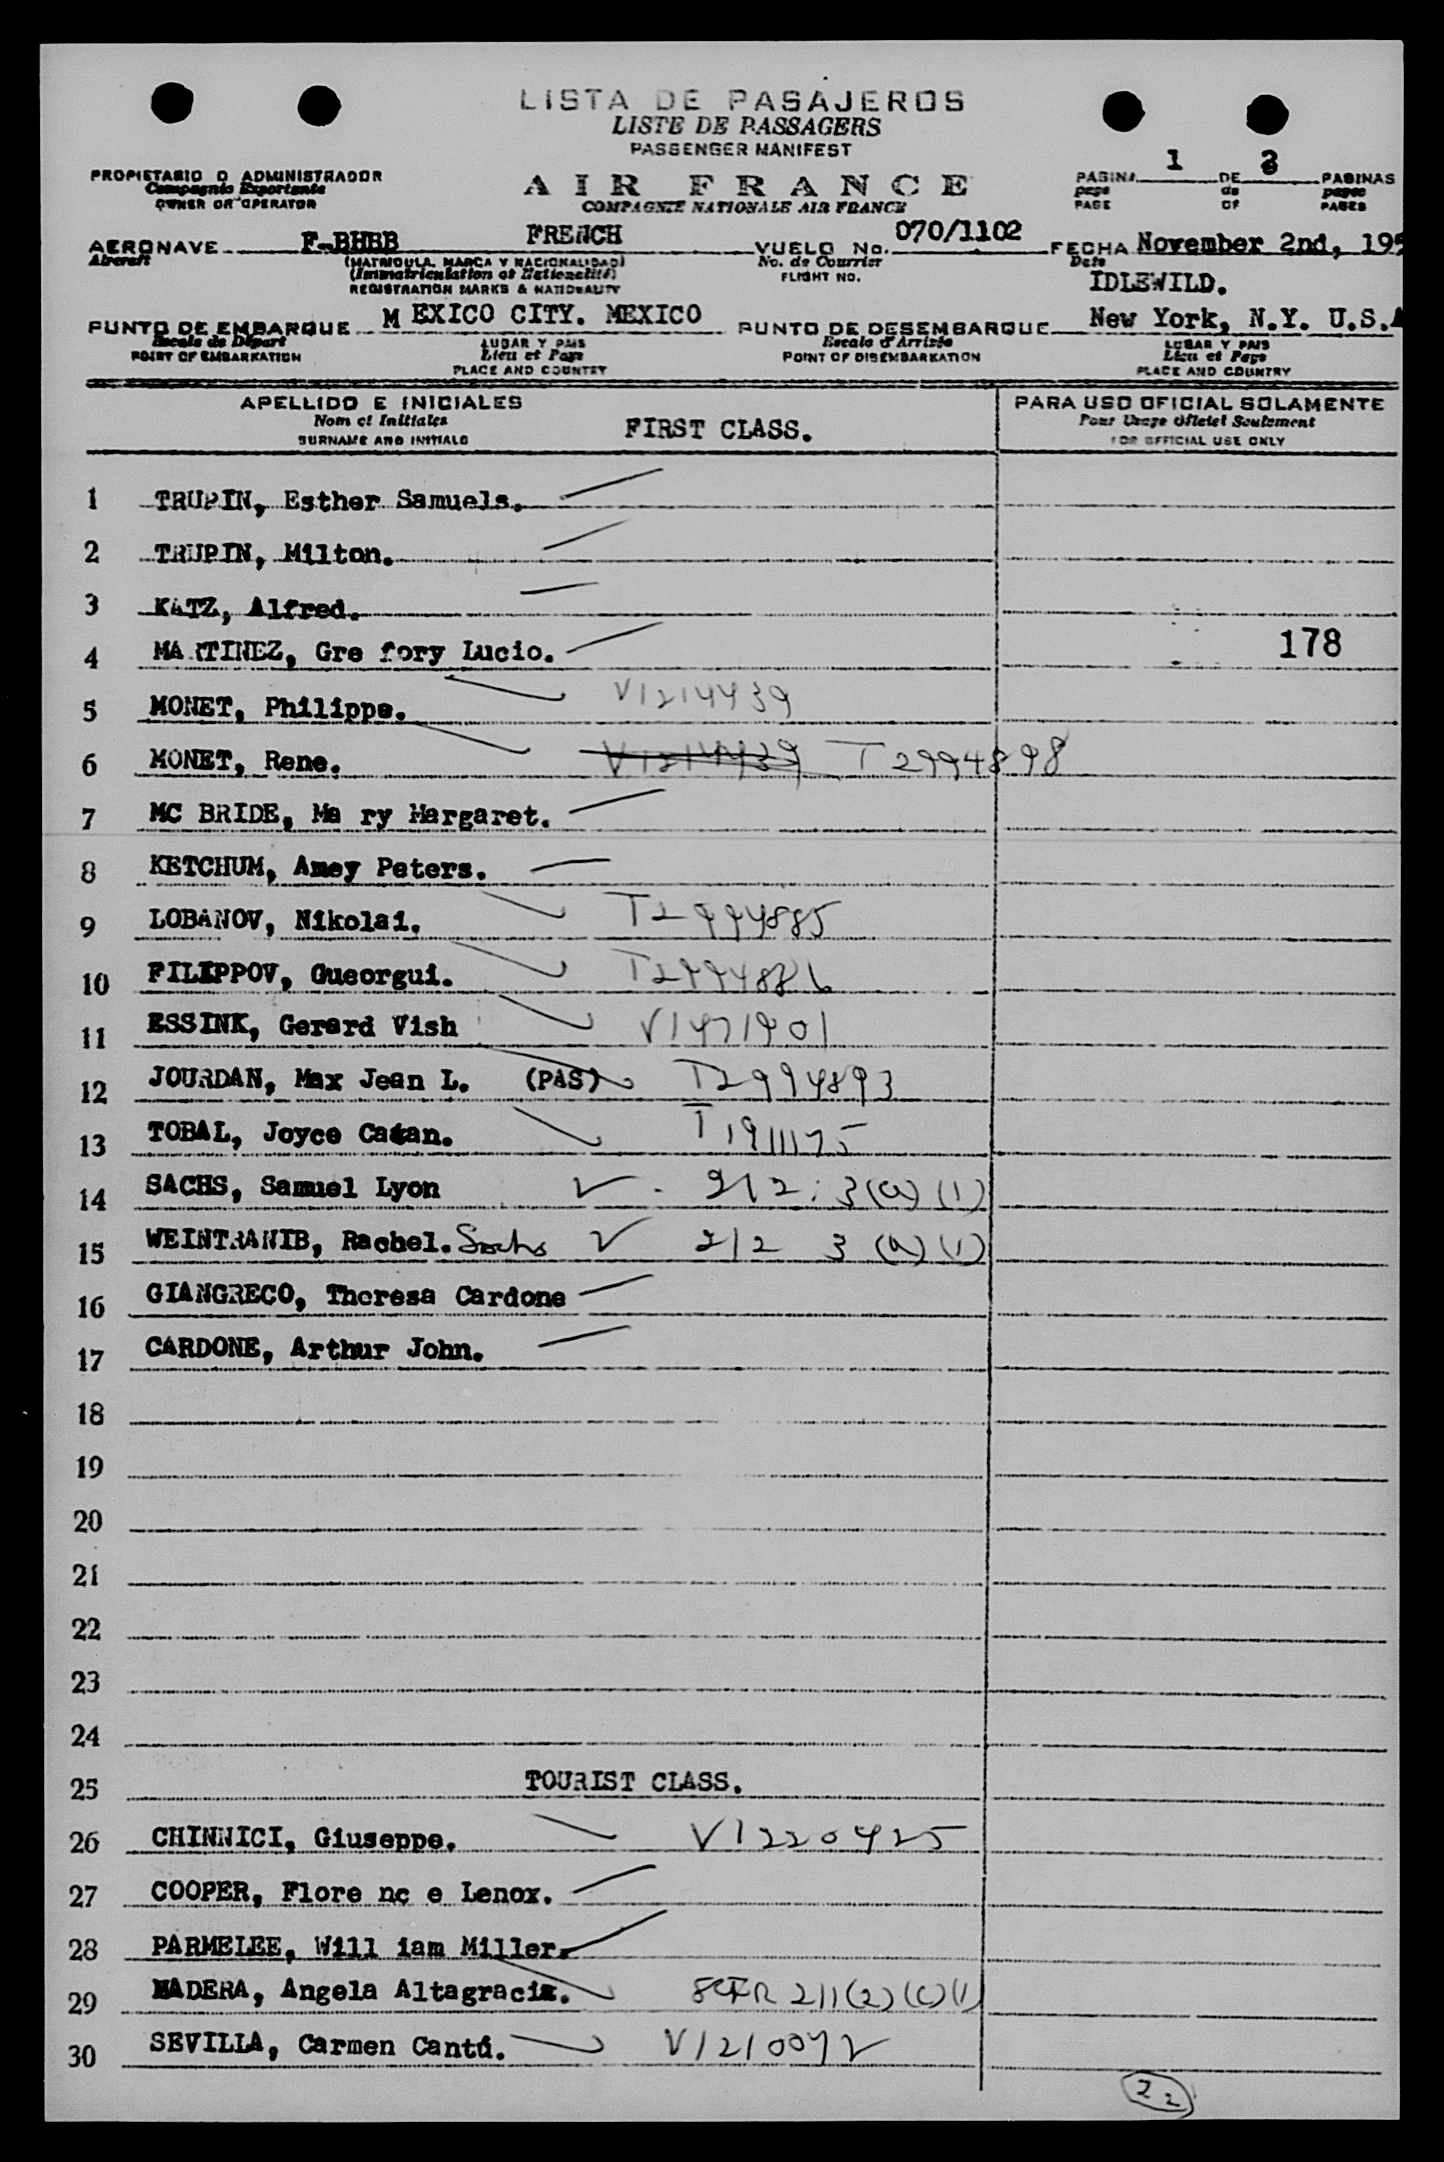 LISTA DE PASAJEROS
LISTE DE PASSAGERS
PASSENGER MANIFEST
PROPIETARIO O ADMINISTRADOR
Compagnie Exportante
OWNER OR OPERATOR
AIR FRANCE
COMPAGNIE NATIONALE AIR FRANCE
PAGINA 1 DE 3 PAGINAS
page de pages
PAGE OF PAGES
AERONAVE F-BHBB FRENCH VUELO No. 070/1102 FECHA November 2nd, 195
Aircraft (MATRICULA, MARCA Y NACIONALIDAD) No. de Courrier Date
(Immatriculation et Nationalité) FLIGHT NO.
REGISTRATION MARKS & NATIONALITY
IDLEWILD.
PUNTO DE EMBARQUE M EXICO CITY. MEXICO PUNTO DE DESEMBARQUE New York, N.Y. U.S.A
Escale de Départ LUGAR Y PAIS Escale d'Arrivée LUGAR Y PAIS
POINT OF EMBARKATION Lieu et Pays POINT OF DISEMBARKATION Lieu et Pays
PLACE AND COUNTRY PLACE AND COUNTRY
APELLIDO E INICIALES PARA USO OFICIAL SOLAMENTE
Nom et Initiales FIRST CLASS. Pour Usage Officiel Seulement
SURNAME AND INITIALS FOR OFFICIAL USE ONLY
1 TRUPIN, Esther Samuels.
2 TRUPIN, Milton.
3 KATZ, Alfred.
4 MARTINEZ, Gre fory Lucio. 178
5 MONET, Philippe. V1214439
6 MONET, Rene. V1214439 T2994898
7 MC BRIDE, Ma ry Margaret.
8 KETCHUM, Amey Peters.
9 LOBANOV, Nikolai. T2994885
10 FILIPPOV, Gueorgui. T2994886
11 ESSINK, Gerard Vish V1471901
12 JOURDAN, Max Jean L. (PAS) T2994893
13 TOBAL, Joyce Catan. T1911175
14 SACHS, Samuel Lyon 212. 3(a)(1)
15 WEINTRANIB, Rachel. Sachs 212 3(a)(1)
16 GIANGRECO, Theresa Cardone
17 CARDONE, Arthur John.
18
19
20
21
22
23
24
25 TOURIST CLASS.
26 CHINNICI, Giuseppe. V1220425
27 COOPER, Flore nc e Lenox.
28 PARMELEE, Will iam Miller.
29 MADERA, Angela Altagracia. 8CFR 211(2)(c)(1)
30 SEVILLA, Carmen Cantú. V1210072
22